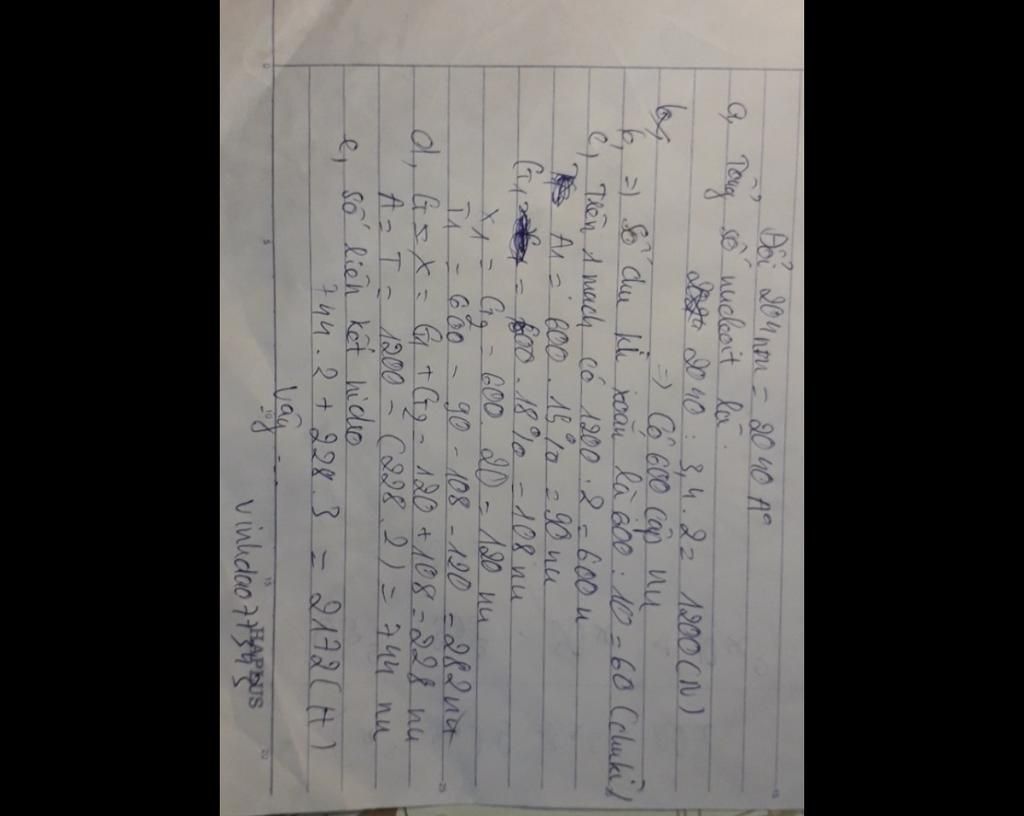 Đổi 204nm = 2040 A°
a, Tổng số nucleoit là:
2040 : 3,4 . 2 = 1200 (N)
=> Có 600 cặp nu
b, => Số chu kì xoắn là 600 : 10 = 60 (chu kì)
c, Trên 1 mạch có 1200 : 2 = 600 n
A1 = 600 . 15% = 90 nu
G1 = 600 . 18% = 108 nu
X1 = G2 = 600 . 20 = 120 nu
T1 = 600 - 90 - 108 - 120 = 282 nu
d, G = X = G1 + G2 = 120 + 108 = 228 nu
A = T = 1200 - (228 . 2) = 744 nu
e, số liên kết hidro
744 . 2 + 228 . 3 = 2172 (H)
Vậy ...
vinhdao77345